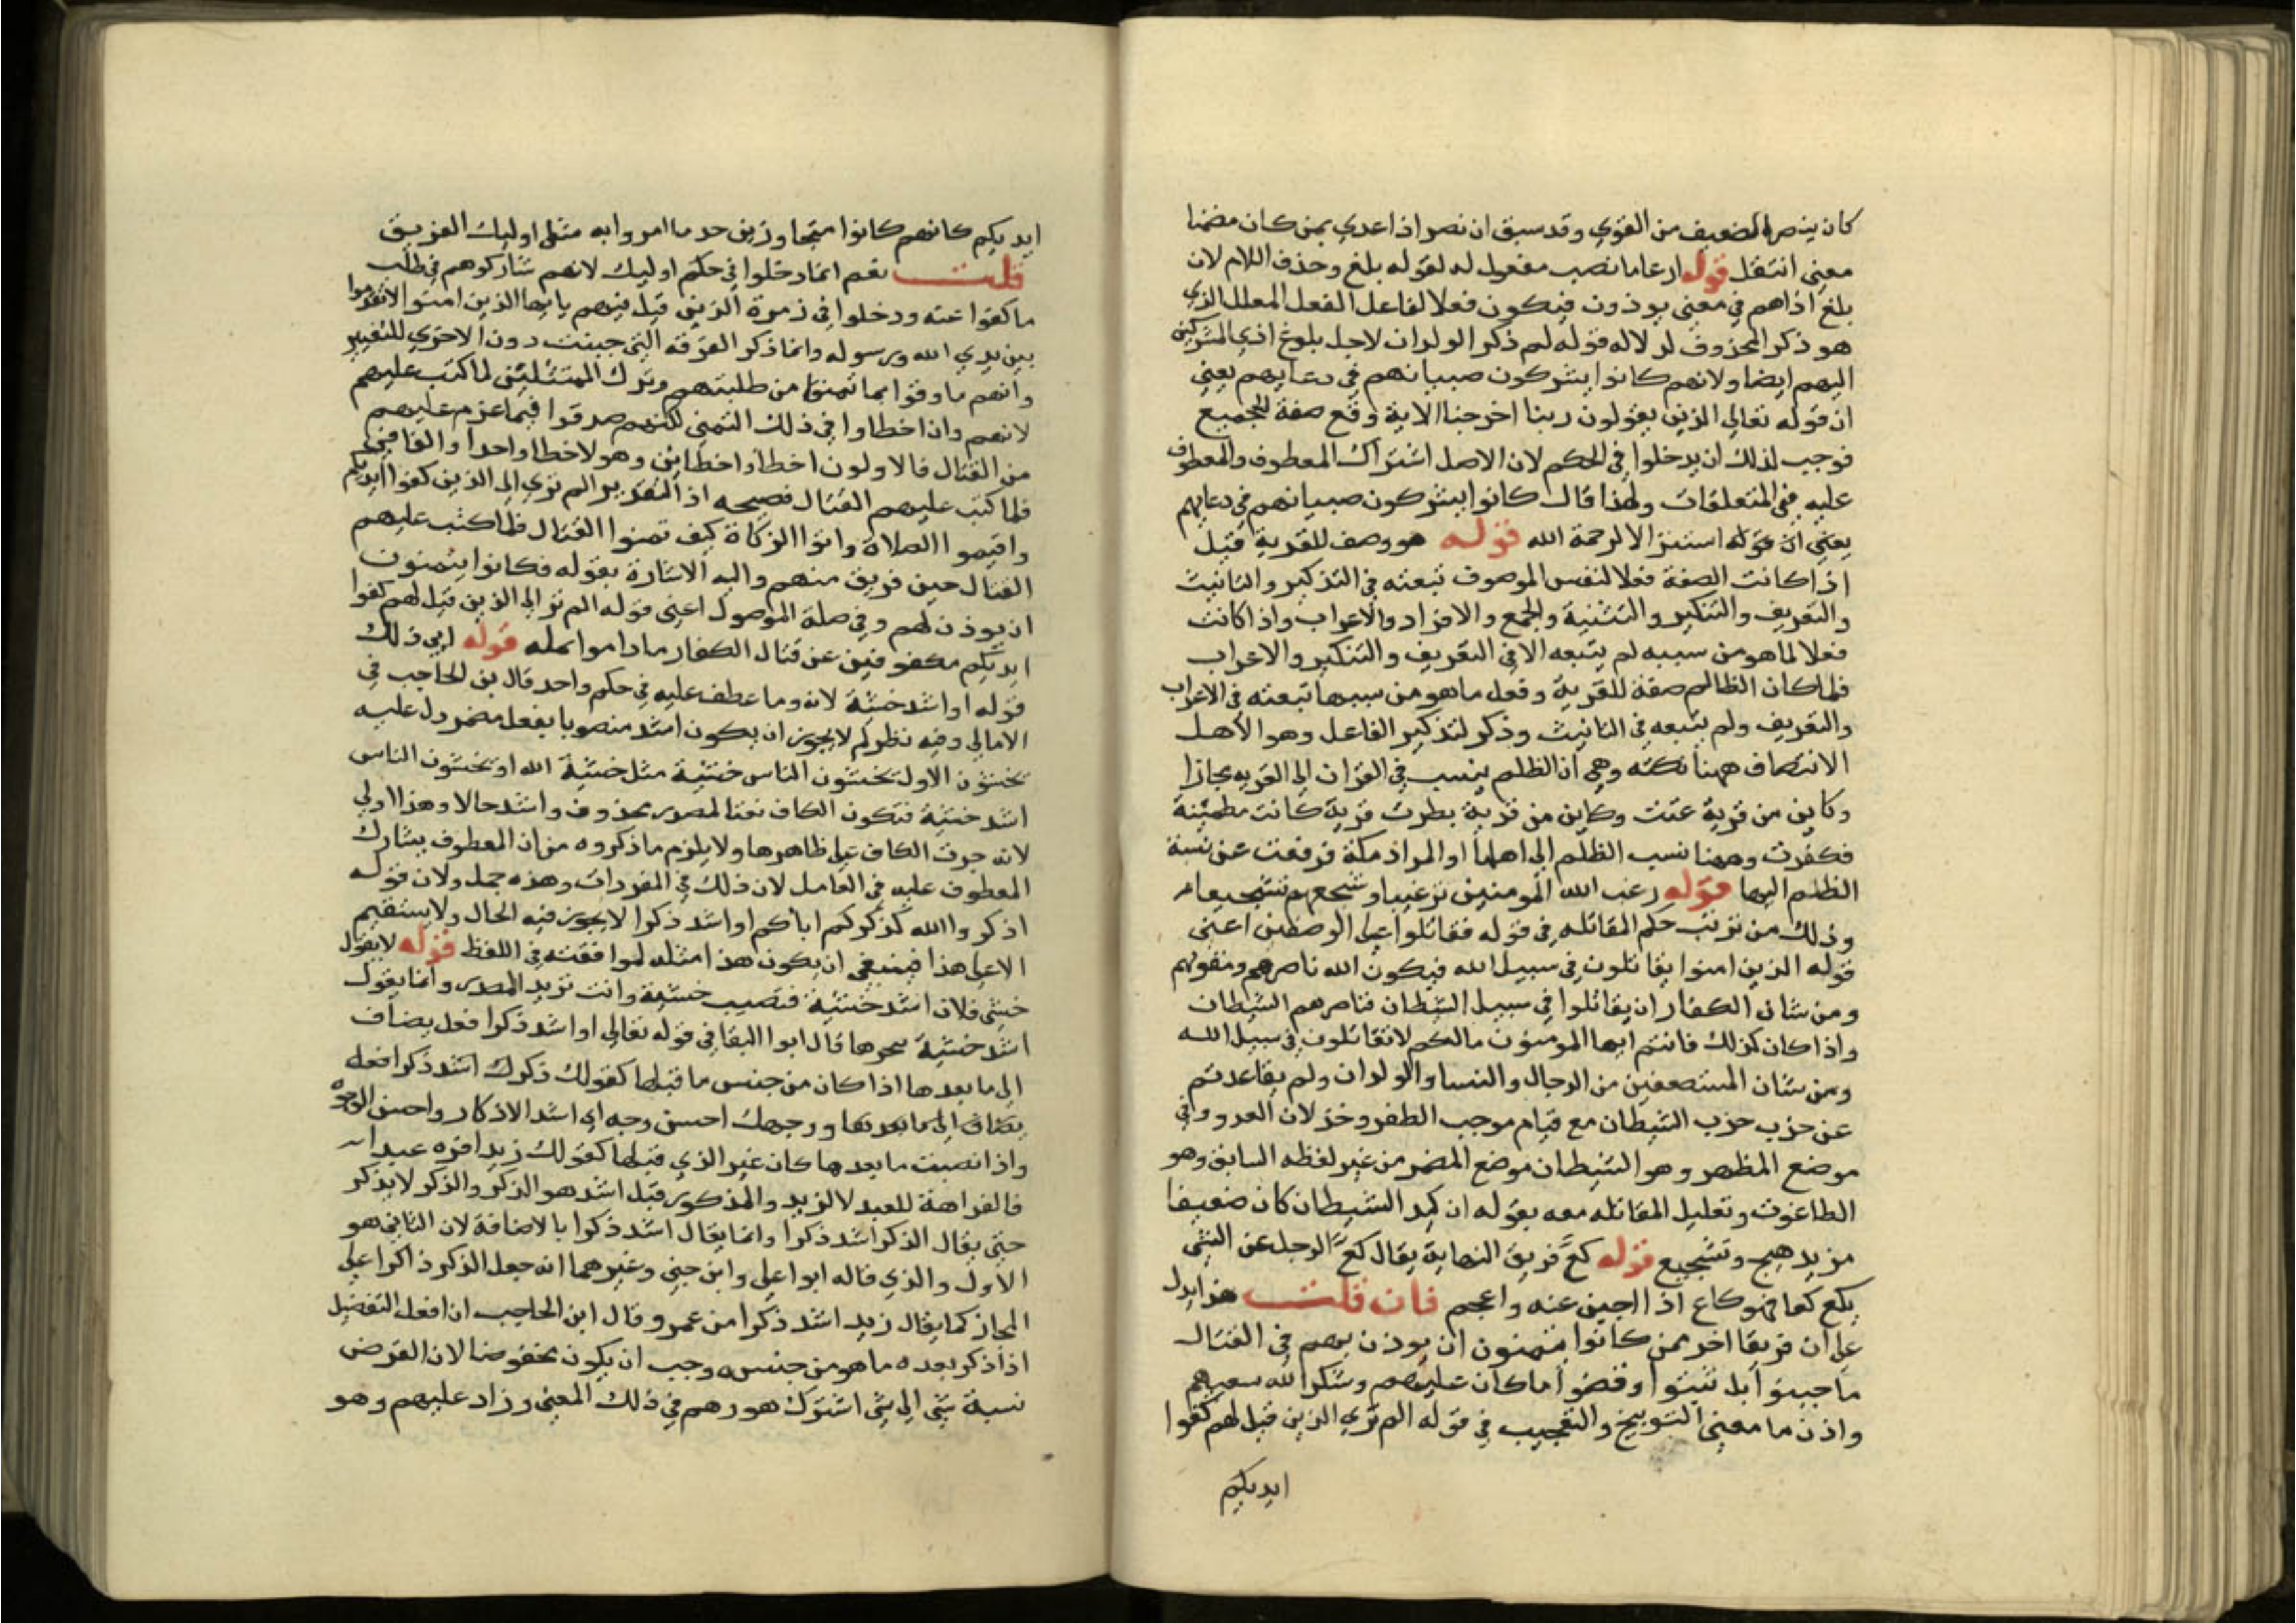 كان ينصر الضعيف من القوي وقد سبق ان نصر اذا عدي بمن كان مضمنا
معني انتقل قوله ارغاما نصب مفعول له لقوله بلغ وحذف اللام لان
بلغ اذاهم في معني يوذون فيكون فعلا لفاعل الفعل المعلل الذي
هو ذكر المحذوف لدلاله قوله لم ذكر الولدان لاجل بلوغ اذي المشركين
اليهم ايضا ولانهم كانوا يشركون صبيانهم في دعايهم يعني
ان قوله تعالي الذين يقولون ربنا اخرجنا الاية وقع صفة للجميع
فوجب لذلك ان يدخلوا في الحكم لان الاصل اشتراك المعطوف والمعطوف
عليه في المتعلقات ولهذا قال كانوا يشركون صبيانهم في دعايهم
يعني ان قوله استنزالا لرحمة الله قوله هو وصف للقرية قيل
اذا كانت الصفة فعلا لنفس الموصوف تبعته في التذكير والتانيث
والتعريف والتنكير والتثنية والجمع والافراد والاعراب واذا كانت
فعلا لما هو من سببه لم يتبعه الا في التعريف والتنكير والاعراب
فلما كان الظالم صفة للقرية وفعل ما هو من سببها تبعته في الاعراب
والتعريف ولم يتبعه في التانيث وذكر لتذكير الفاعل وهو الأهل
الانتصاف ههنا نكته وهي ان الظلم ينسب في القران الي القريه مجازا
وكاين من قرية عتت وكاين من قرية بطرت قرية كانت مطمينة
فكفرت وههنا نسب الظلم الي اهلها اد المراد مكة فرفعت عن نسبة
الظلم اليها قوله رغب الله المومنين ترغيبا وشجعهم تشجيعا
وذلك من ترتب حكم المقاتله في قوله فقاتلوا علي الوصفين اعني
قوله الذين امنوا يقاتلون في سبيل الله فيكون الله ناصرهم ومقويهم
ومن شان الكفار ان يقاتلوا في سبيل الشيطان فناصرهم الشيطان
واذا كان كذلك فانتم ايها المومنون مالكم لا تقاتلون في سبيل الله
ومن شان المستضعفين من الرجال والنسا والولدان ولم يقاعدتم
عن حزب حزب الشيطان مع قيام موجب الظفر وخذلان العدو وفي
موضع المظهر وهو الشيطان موضع المضمر من غير لفظه السابق وهو
الطاغوت وتعليل المقاتله معه بقوله ان كيد الشيطان كان ضعيفا
مزيد هيج وتشجيع قوله كع فريق النهاية يقال كع الرجل عن الشي
يكع كعا فهو كاع اذا جبن عنه واعجم فان قلت هذا يدل
علي ان فريقا اخر ممن كانوا يتمنون ان يوذن لهم في القتال
ما جبنوا بل ثبتوا وقضوا ما كان عليهم وشكر الله سعيهم
واذن ما معني التوبيخ والتعجيب في قوله الم تري الذين قيل لهم كفوا
ايديكم
ايديكم كانهم كانوا متجاوزين حد ما امروا به مثل اوليك الفريق
قلت نعم انما دخلوا في حكم اوليك لانهم شاركوهم في طلب
ما كفوا عنه ودخلوا في زمرة الذين قيل فيهم يا يها الذين امنوا لا تقدموا
بين يدي الله ورسوله وانما ذكر الفرقه التي جبنت دون الاخري للتعيير
وانهم ما وفوا بما تمنوا من طلبتهم وترك الممتثلين لما كتب عليهم
لانهم وان اخطاوا في ذلك التمني لكنهم صدقوا فيما عزم عليهم
من القتال فالاولون اخطاوا خطاين وهولا خطا واحدا والفا في
فلما كتب عليهم القتال فصيحه اذ التقدير الم تري الي الذين كفوا ايديكم
واقيموا الصلاة واتوا الزكاة كيف تمنوا القتال فلما كتب عليهم
القتال حين فريق منهم واليه الاشارة بقوله فكانوا يتمنون
ان يوذن لهم وفي صلة الموصول اعني قوله الم تر الي الذين قيل لهم كفوا
ايديكم مكفوفين عن قتال الكفار ما داموا بمكه قوله ابي ذلك
قوله او اشد خشية لانه وما عطف عليه في حكم واحد قال بن الحاجب في
الامالي وفيه نظركم لا يجوز ان يكون اشد منصوبا بفعل مضمر دل عليه
يخشون الاول يخشون الناس خشية مثل خشية الله او يخشون الناس
اشد خشية فتكون الكاف نعتا لمصدر محذوف واشد حالا وهذا اولي
لانه جرت الكاف علي ظاهرها ولا يلزم ما ذكروه من ان المعطوف يشارك
المعطوف عليه في العامل لان ذلك في المفردات وهذه جمل ولان قوله
اذكروا الله كذكركم اباكم او اشد ذكرا لا يجوز فيه الحال ولا يستقيم
الا علي هذا فينبغي ان يكون هذا مثله لموافقته في اللفظ قوله لا يقول
خشي فلان اشد خشية فتصيب خشية وانت تريد المصدر وانما يقول
اشد خشية بجرها قال ابوا البقا في قوله تعالي او اشد ذكرا فعل يضاف
الي ما بعدها اذا كان من جنس ما قبلها كقولك ذكرك اشد ذكر افعل
يضاف الي ما بعدها ووجهك احسن وجه اي اشد الاذكار واحسن الوجوه
واذا نصبت ما بعدها كان غير الذي قبلها كقولك زيد افره عبدا
فالفراهة للعبد لا لزيد والمذكور قبل اشد هو الذكر والذكر لا يذكر
حتي يقال الذكر اشد ذكرا وانما يقال اشد ذكرا بالاضافة لان الثاني هو
الاول والذي قاله ابوا علي وابن جني وغيرهما انه جعل الذكر ذاكرا علي
المجاز كما يقال زيد اشد ذكرا من عمرو وقال ابن الحاجب ان افعل التفضيل
اذا ذكر بعده ما هو من جنسه وجب ان يكون مخفوضا لان الغرض
نسبة شي الي شي اشترك هو وهم في ذلك المعني وزاد عليهم وهو